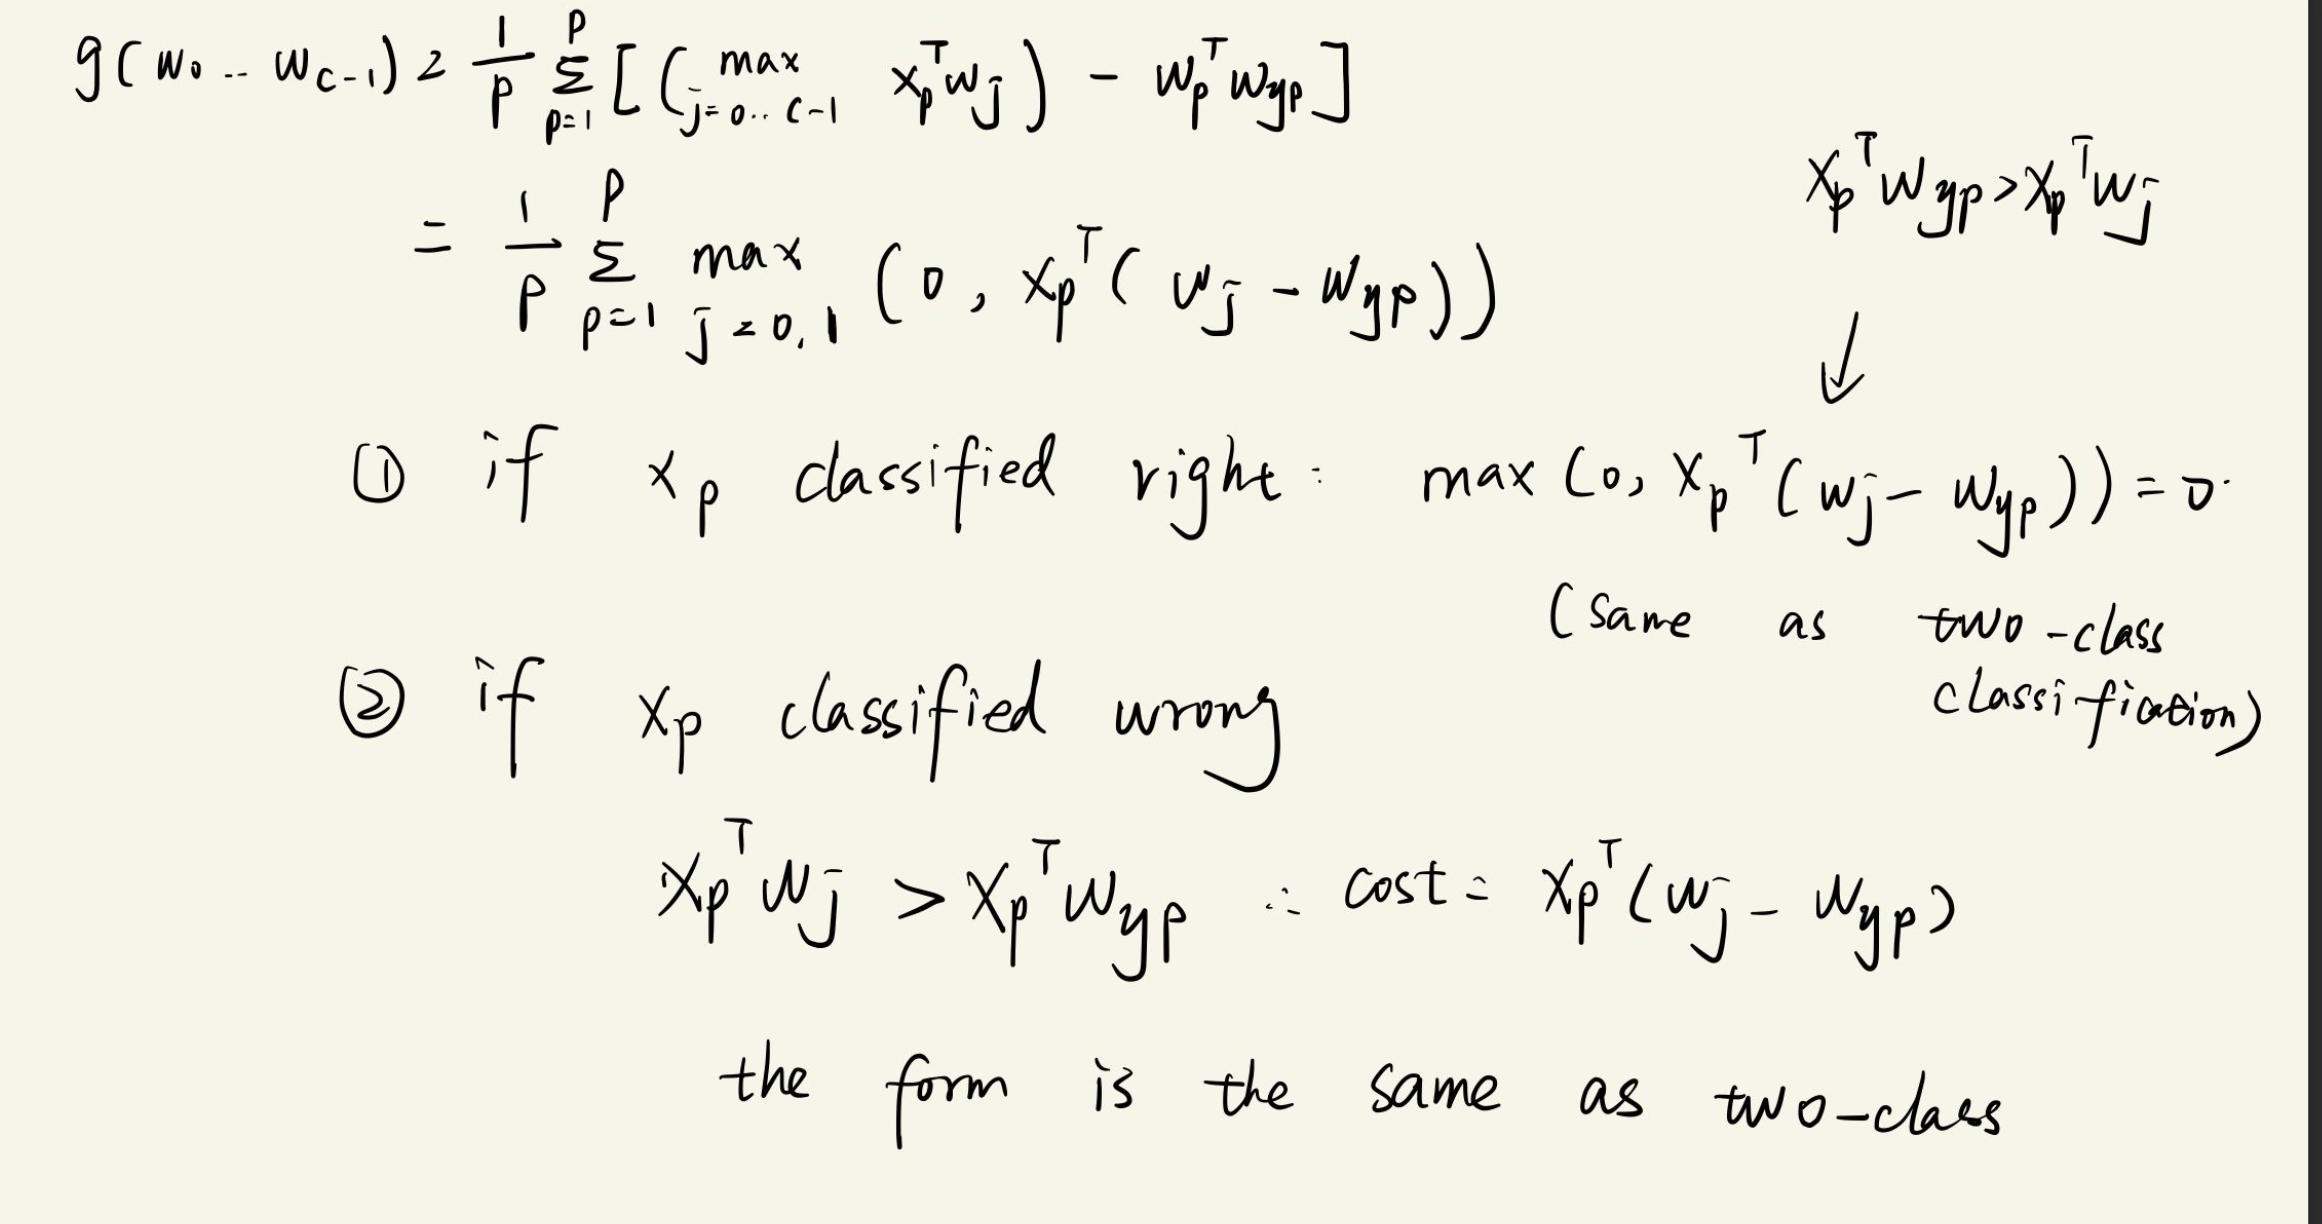 g(w₀ .. w_{c-1}) = 1/P Σ_{p=1}^{P} [ ( max_{j=0..c-1} x_p^T w_j ) - w_p^T w_{yp} ]
x_p^T w_{yp} > x_p^T w_j
= 1/P Σ_{p=1}^{P} max_{j=0,1} (0, x_p^T ( w_j - w_{yp}))
↓
① if x_p classified right: max (0, x_p^T (w_j - w_{yp})) = 0.
(same as two-class
classification)
② if x_p classified wrong
x_p^T w_j > x_p^T w_{yp} ∴ cost = x_p^T (w_j - w_{yp})
the form is the same as two-class